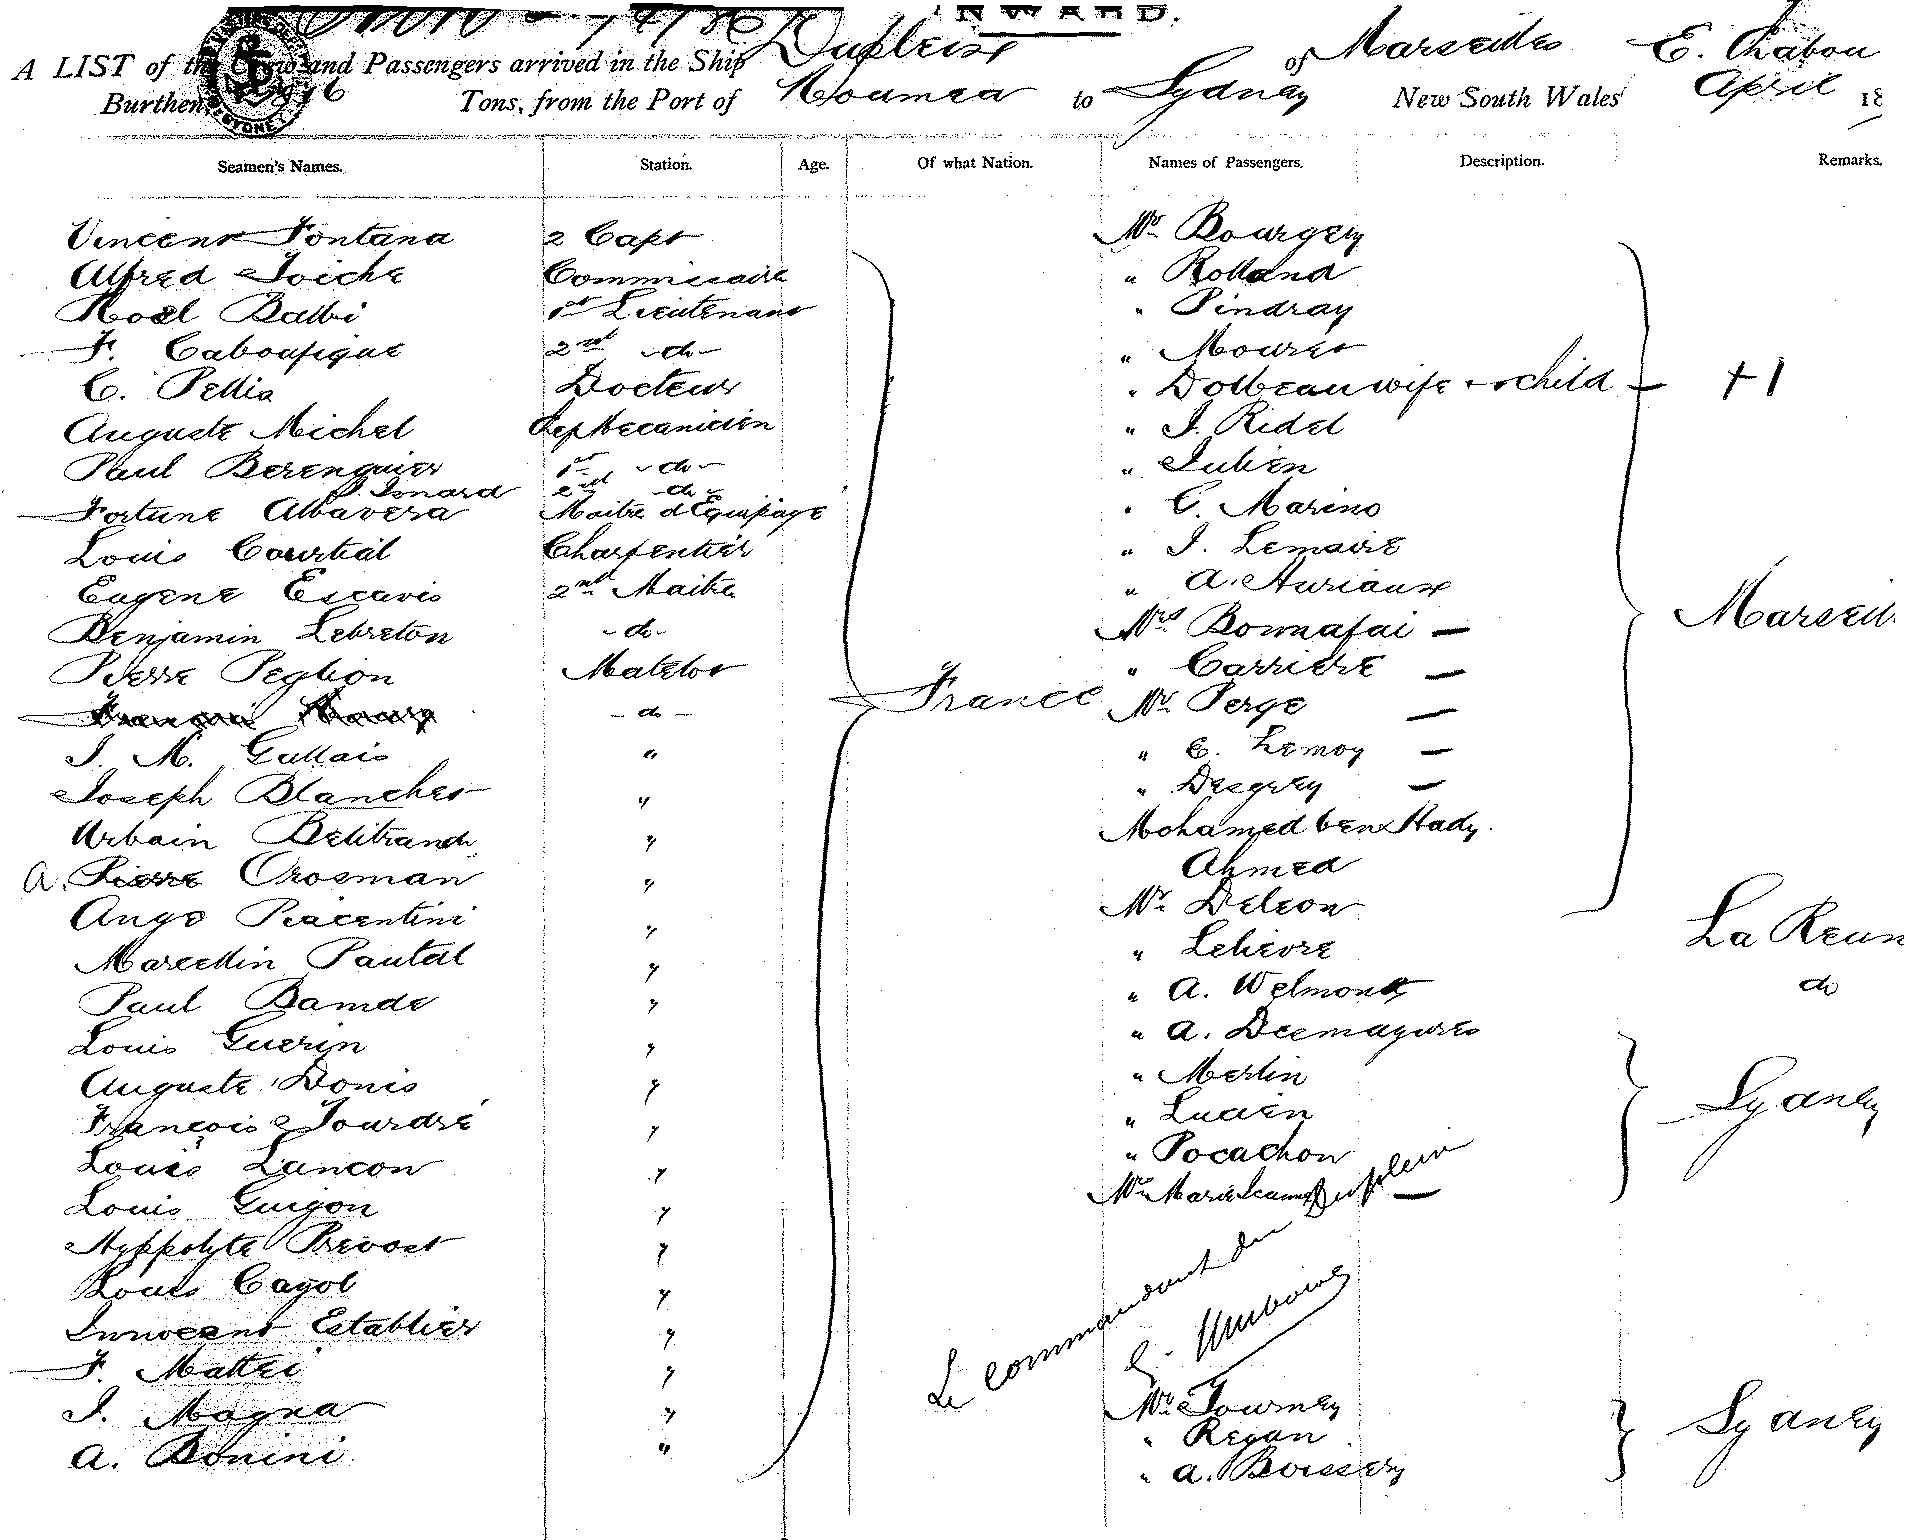 INWARD.
A LIST of the and Passengers arrived in the Ship Dupleix of Marseilles E. Chabou
Burthen Tons, from the Port of Noumea to Sydney New South Wales April 18
Seamen's Names. Station. Age. Of what Nation. Names of Passengers. Description. Remarks.
Vincent Fontana 2 Capt Mr. Bourgey
Alfred Joiche Commissaire " Rolland
Noël Balbi 1st Lieutenant " Pindray
F. 2nd -do- " Mouret
C. Pellis Docteur " Dolbeau wife + child — +1
Auguste Michel Mecanicien " J. Ridel
Paul Berenguier 1st -do- " Julien
J. Isnard 2nd -do-
Fortune Albavera Maitre d'Equipage " C. Marino
Louis Courtial Charpentier " J. Lemaire
Eugene Escavis 2nd Maitre " A. Auriaux
Benjamin Lebreton -do- Mrs Bonnafai — Marseil
Pierre Peglion Matelot " Carriere —
-do- France Mr. Perge —
J. M. Gallais " " E. Lemoy —
Joseph Blanchet " " Desgrey —
Urbain Belitrand " Mohamed ben Hady.
A. Pierre Crosman " Ahmed
Ange Piacentini " Mr. Deleon La Reun
Marcellin Pautal " " Lelievre
Paul Bamde " " A. Welmont do
Louis Guerin " " A.
Auguste Donis " " Merlin
François Jourdré " " Lucien Sydney
Louis Lancon " " Pocachon
Louis Guigon " Mr. Marie Jeanne —
Hyppolyte Prevost " Le Commandant du Dupleix
Louis Cayol "
Innocent Establier "
F. Mattei "
J. Magna " Mr. Tourney Sydney
A. Bonini " " Regan
" A. Boissery